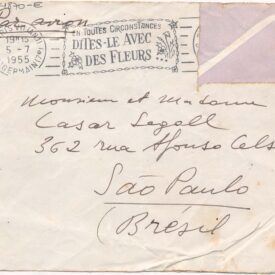 Par avion
19H15
5-7
1955
EN TOUTES CIRCONSTANCES
DITES-LE AVEC
DES FLEURS
Monsieur et Madame
Casar Segoll
362 rua Afonso Cels
São Paulo
(Brésil)